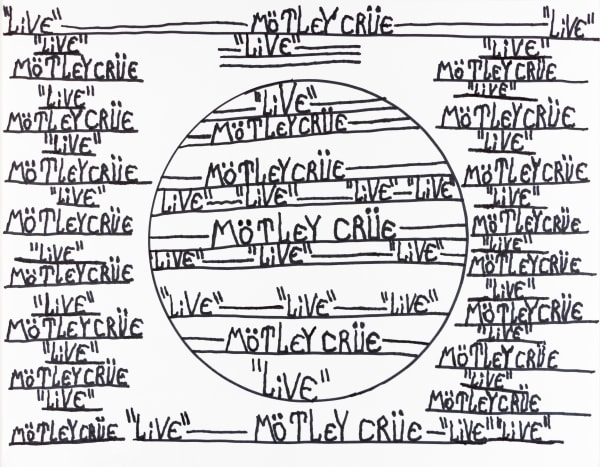 "LiVE" MöTLEY CRüE "LiVE"
"LiVE"
MöTLEY CRüE
"LiVE"
MöTLEY CRüE
"LiVE"
MöTLEY CRüE
"LiVE"
MöTLEY CRüE
"LiVE"
MöTLEY CRüE
"LiVE"
MöTLEY CRüE
"LiVE"
MöTLEY CRüE
"LiVE"
"LiVE"
"LiVE"
MöTLEY CRüE
MöTLEY CRüE
"LiVE" "LiVE" "LiVE" "LiVE"
MöTLEY CRüE
"LiVE" "LiVE" "LiVE"
"LiVE" "LiVE" "LiVE"
MöTLEY CRüE
"LiVE"
"LiVE"
MöTLEY CRüE
"LiVE"
MöTLEY CRüE
"LiVE"
MöTLEY CRüE
"LiVE"
MöTLEY CRüE
"LiVE"
MöTLEY CRüE
"LiVE"
MöTLEY CRüE
"LiVE"
MöTLEY CRüE
"LiVE"
MöTLEY CRüE
MöTLEY CRüE "LiVE" MöTLEY CRüE "LiVE" "LiVE"